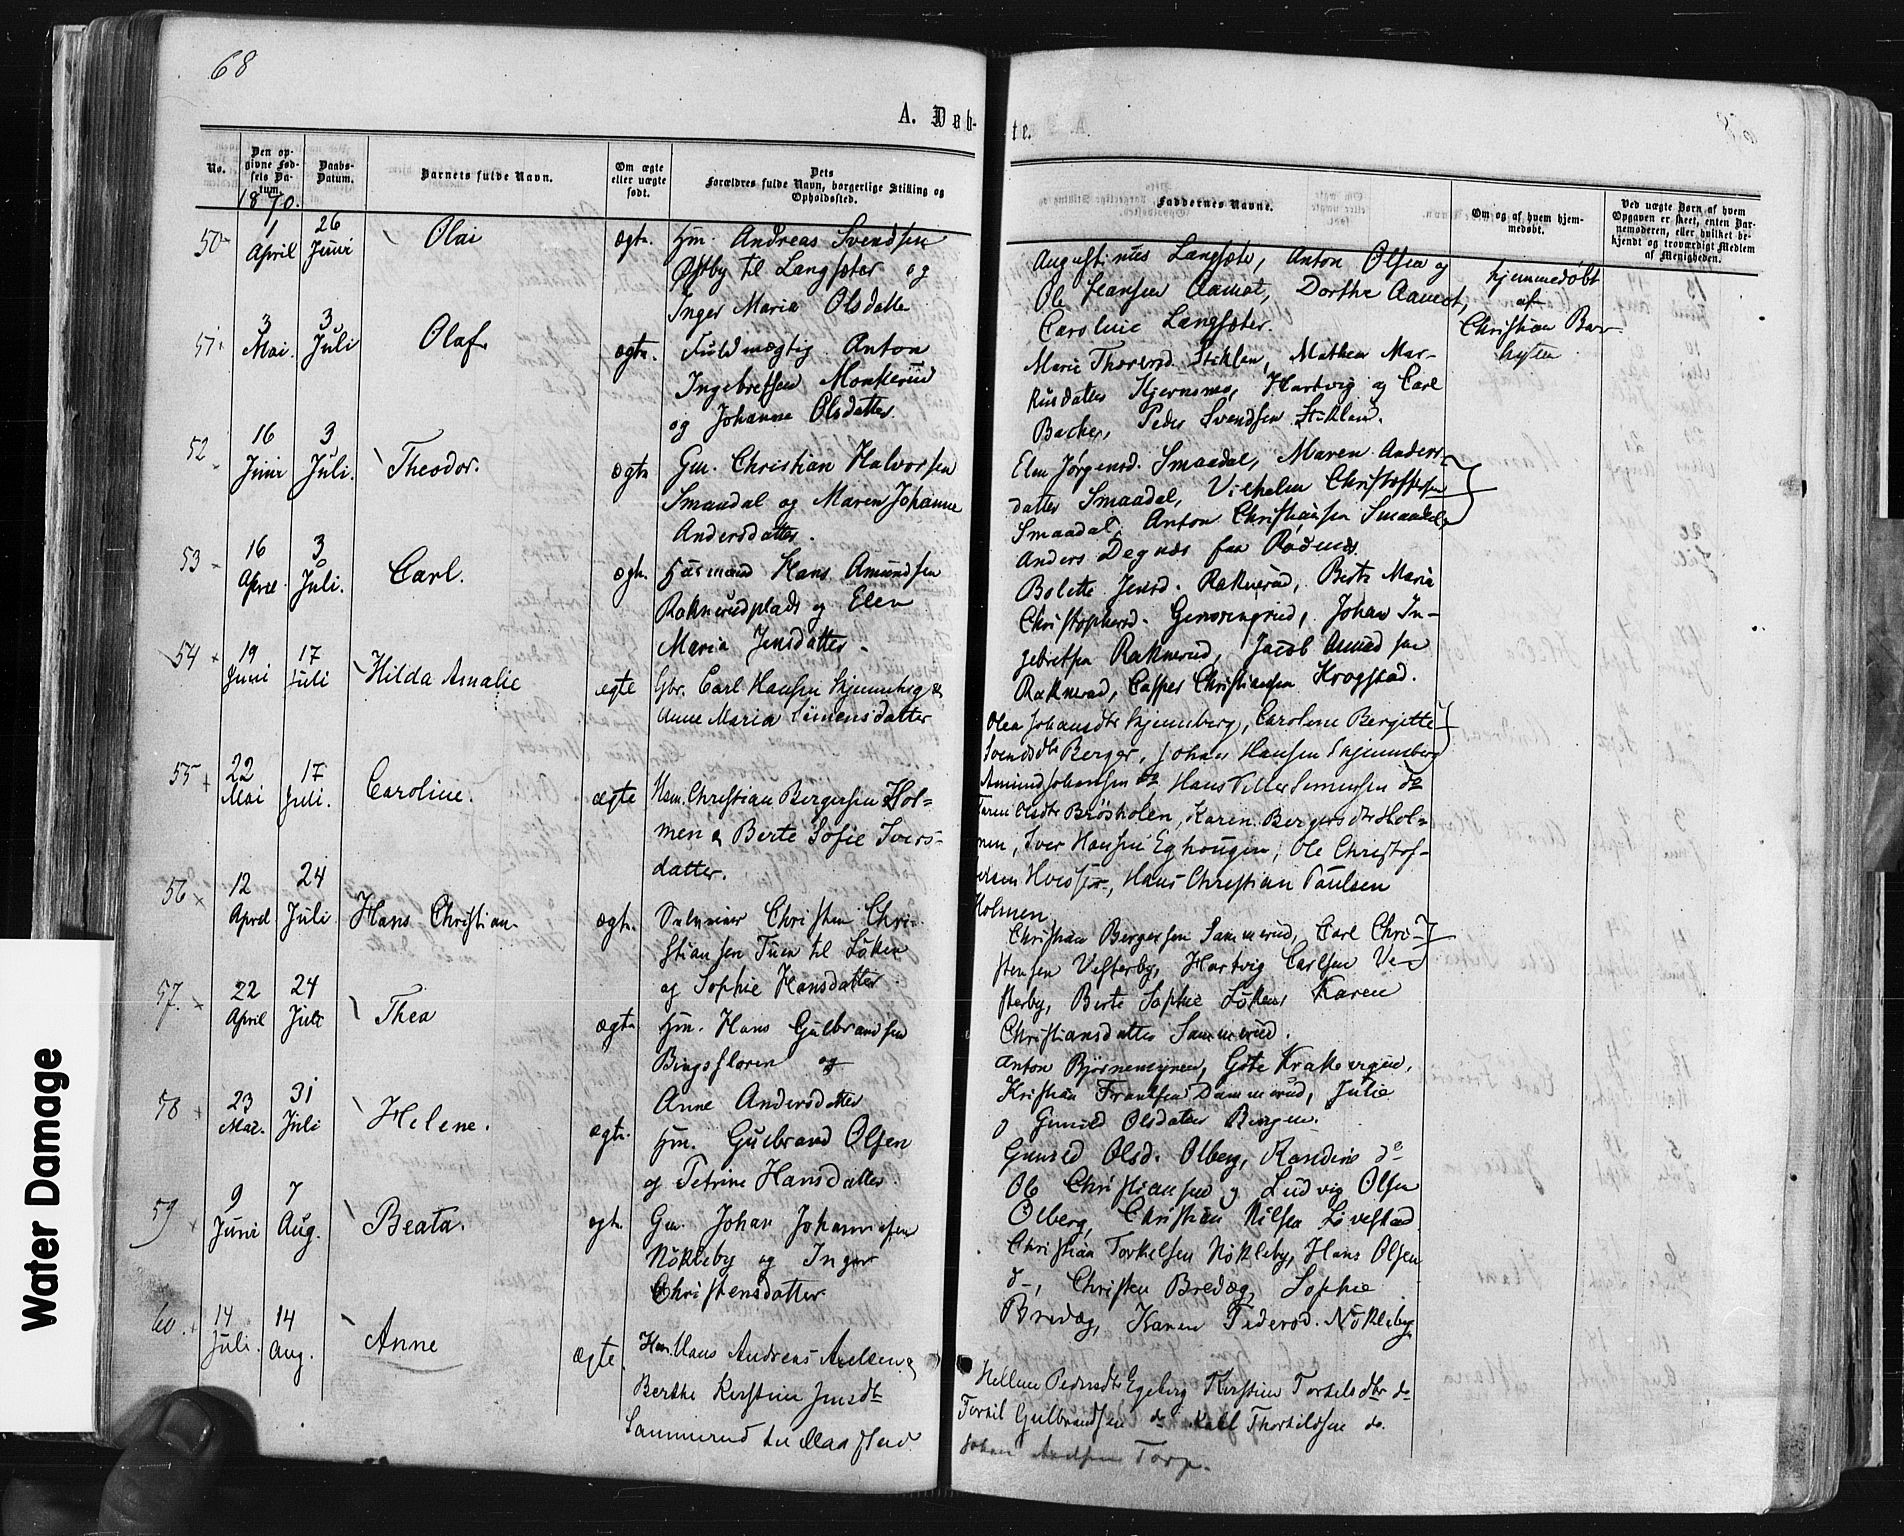 68
A. Døb-
te.
No.
Den op-
givne Fød-
sels Da-
tum.
Daabs-
Datum.
Barnets fulde Navn.
Om ægte
eller uægte
født.
Dets
Forældres fulde Navn, borgerlige Stilling og
Opholdssted.
Faddernes Navne.
Om og af hvem hjem-
medøbt.
Ved uægte Børn af hvem
Opgaven er skeet, enten Bar-
nemoderen, eller hvilket be-
kjendt og troværdigt Medlem
af Menigheden.
1870.
50
1
April
26
Juni
Olai
ægte.
Hm. Andreas Svendsen
Østby til Langsæter og
Inger Maria Olsdatter
Augustinus Langsæter, Anton Olsen og
Ole Hansen Aamot, Dorthe Aamot,
Caroline Langsæter.
hjemmedøbt
af
Christian Bar-
51
3
Mai.
3
Juli
Olaf.
ægte.
Fuldmægtig Anton
Ingebretsen Monkerud
og Johanne Olsdatter.
Marie Thoresd. Stiklen, Mathea Mar-
kusdatter Kjernsmo, Hartvig og Carl
Backer, Peder Svendsen Stiklen.
52
16
Juni
3
Juli.
Theodor.
ægte
Gm. Christian Halvorsen
Smaadal og Maren Johanne
Andersdatter.
Elen Jørgensd. Smaadal, Maren Anders-
datter Smaadal, Vilhelm Christoffersen
Smaadal, Anton Christiansen Smaadal,
Anders Degnæs fra Rødenæs.
53
16
April
3
Juli.
Carl.
ægte.
Husmand Hans Amundsen
Raknerudplads og Elen
Maria Jensdatter.
Bolette Jensd. Raknerud, Berte Maria
Christophersd. , Johan In-
gebretsen Raknerud, Jacob Amundsen
Raknerud, Casper Christiansen Krogstad.
54
19
Juni
17
Juli
Hilda Amalie
ægte
Gbr. Carl Hansen Skjønneberg &
Anne Maria Simensdatter
Olea Johansdtr Skjønneberg, Caroline Bergitte
Svendsdtr Berger, Johan Hansen Skjønneberg
Amund Johansen do Hans Simensen do
55
22
Mai
17
Juli.
Caroline.
ægte
Hsm. Christian Bergersen Hol-
men & Berte Sofie Ivers-
datter.
Karen Olsdtr Brøsholen, Karen Bergersdtr Hol-
men, Iver Hansen Eghougen, Ole Christof-
fersen , Hans Christian Paulsen
Holmen
56
12
April
24
Juli
Hans Christian.
ægte.
Christen Chri-
stiansen til Løken
og Sophie Hansdatter.
Christian Bergersen Sammerud, Carl Chri-
stensen Vesterby, Hartvig Carlsen Ve-
sterby, Berte Sophie Løken, Karen
Christiansdatter Sammerud.
57.
22
April
24
Juli
Thea
ægte
Hm. Hans Gulbrandsen
Bingsfloren og
Anne Andersdatter
Anton Bjørnemyren, Gote Krakevigen,
Kristian Frantsen Dammerud, Julie
og Gunild Olsdatter Bingen.
58
23
Mai.
31
Juli
Helene.
ægte.
Hm. Gulbrand Olsen
og Petrine Hansdatter.
Gunild Olsd. Olberg, Randine do
Ole Christiansen og Ludvig Olsen
Olberg, Christian Nilsen Lövestad
59
9
Juni
7
Aug.
Beata.
ægte.
Gm. Johan Johannesen
Nökleby og Inger
Christensdatter
Christian Torkelsen Nökleby, Hans Olsen
do, Christen Bredag, Sophie
Bredag, Karen Pedersd. Nökleby.
60.
14
Juli.
14
Aug.
Anne
ægte.
Hsm. Hans Andreas Axelsen &
Berthe Kirstine Jensdtr
Sammerud
Hellene Pedersdtr Egeberg Kirstine Torkilsdtr do
Torkil Gulbrandsen do Karl Thorkildsen do.
Johan Axelsen Torp.
Water Damage